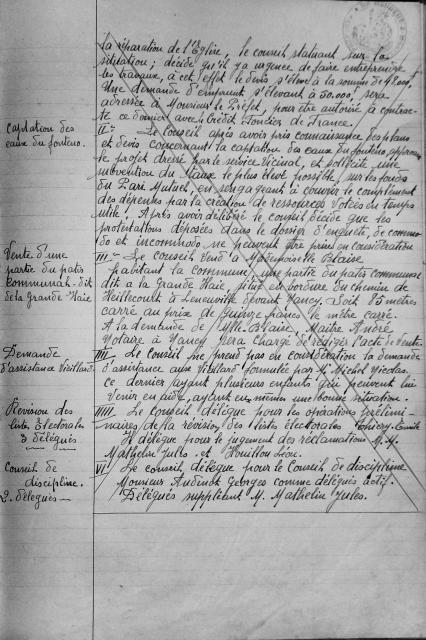 la réparation de l'Eglise, le conseil statuant sur la
situation; décide qu'il y a urgence de faire entreprendre
les travaux, à cet effet le devis s'élève à la somme de 48.000f
Une demande d'emprunt s'élevant à 50.000f sera
adressée à Monsieur le Préfet, pour être autorisé à contrac-
te ce dernier avec le Crédit Foncier de France.
Captation des
eaux du fonteno.
II - Le Conseil après avoir pris connaissance des plans
et devis concernant la captation des eaux du fonteno, approuve
le projet dressé par le service vicinal, et sollicite une
subvention du taux le plus élevé possible, sur les fonds
du Pari Mutuel, en s'engageant à couvrir le complément
des dépenses par la création de ressources votées en temps
utile. Après avoir délibéré le conseil décide que les
protestations déposées dans le dossier d'enquête, de commo-
do et incommodo ne peuvent être prises en considération
Vente d'une
partie du patis
communal - dit
de la grande Haie
III - Le Conseil vend à Mademoiselle Blaise
habitant la commune, une partie du patis communal
dit a la Grande Haie, situé en bordure du chemin de
Heillecourt à Leneuville devant Nancy. Soit 85 mètres
carré au prix de quinze francs le mètre carré.
A la demande de Mlle Blaise, Maître André
Notaire à Nancy sera chargé de rédiger l'acte de vente.
Demande
d'assistance Vieillard
IIII Le Conseil ne prend pas en considération la demande
d'assistance aux Vieillard formulée par M. Michel Nicolas,
ce dernier ayant plusieurs enfants qui peuvent lui
venir en aide, ayant eux mêmes une bonne situation.
Révision des
listes Electorales
3 délégués
IIIII Le Conseil délègue pour les opérations prélimi-
naires de la révision des listes électorales Thiery
Il délègue pour le jugement des réclamations M.M.
Mathelin Jules. et Houillon Léon.
Conseil de
discipline.
2. délégués
VI Le conseil délègue pour le Conseil de discipline
Monsieur Audinot Georges comme délégués actif.
Délégués suppléant M. Mathelin Jules.